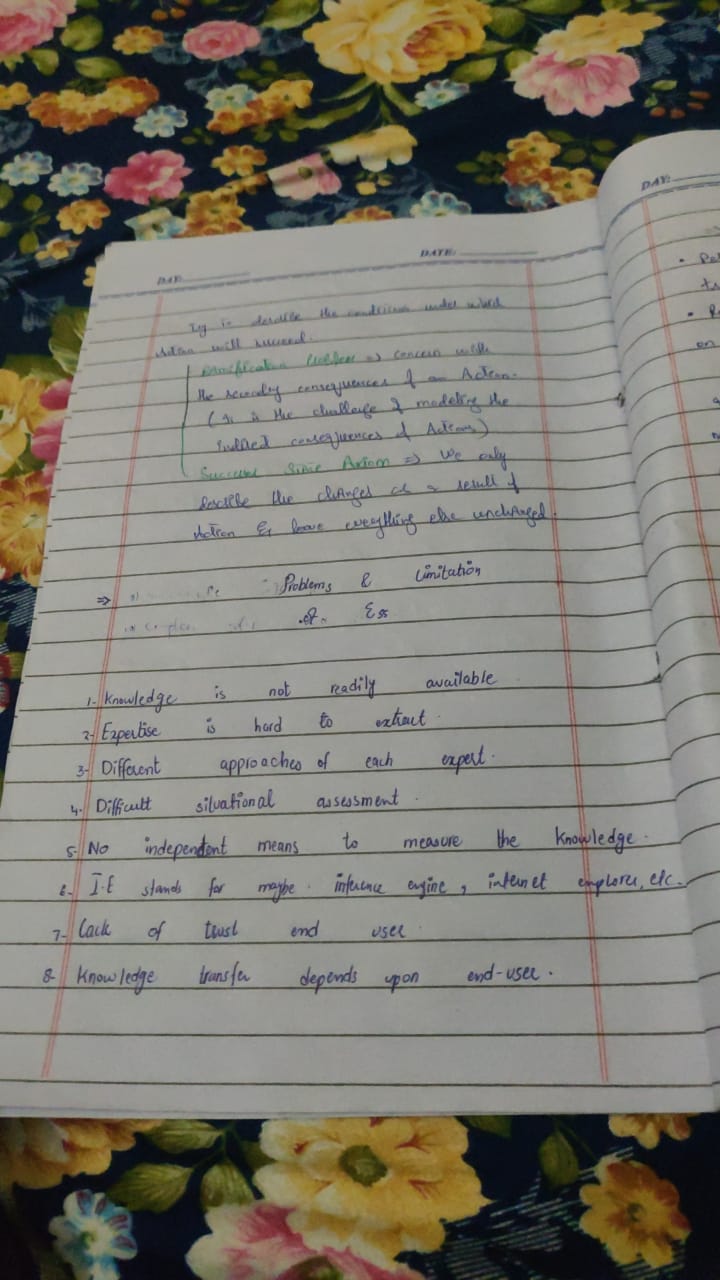 DAY: DATE:
Try to describe the conditions under
Action will succeed.
Ramification Problem => concern with
the secondry consequences of an Action.
(It is the challenge of modeling the
indirect consequences of Actions)
Successor State Axiom => We only
describe the changes as a result of
Action & leave everything else unchanged.
=> Problems & Limitation
of ESs
1- Knowledge is not readily available
2- Expertise is hard to extract.
3- Different approaches of each expert.
4- Difficult situational assessment.
5- No independent means to measure the Knowledge.
6- I.E stands for maybe. inference engine, internet explorer, etc.
7- Lack of trust end user.
8- Knowledge transfer depends upon end-user.
DAY:
on